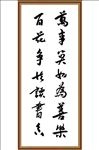 萬事莫如為善樂
百花爭比讀書香